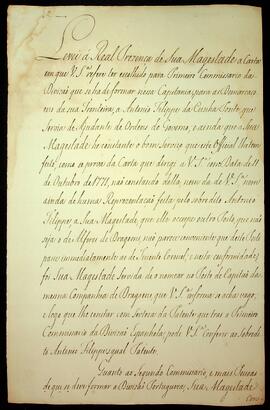 Levei á Real Prezença de Sua Magestade a Carta
em que V. S.ª refere ter escolhido para Primeiro Commissario da
Divizaõ que se ha de formar nessa Capitania, para as Demarca-
çoens da sua Fronteira, a Antonio Filippe da Cunha Ponte, que
servia de Ajudante de Ordens do Governo, e ainda que a Sua
Magestade he constante o bom Serviço que este Official lhe tem
feito, como se prova da Carta que dirigi a V. S.ª em Data de 11
de Outubro de 1771, naõ constando della, nem da de V. S.ª nem
ainda de huma Reprezentaçaõ feita pelo sobredito Antonio
Filippe, a Sua Magestade, que elle occupe outro Posto, que naõ
seja o de Alferes de Dragoens, naõ parece conveniente que deste Posto
passe immediatamente ao de Tenente Coronel, e nesta conformidade,
foi Sua Magestade Servida de o nomear no Posto de Capitaõ da
mesma Companhia de Dragoens que V. S.ª informa se acha vago;
e logo que lhe constar com certeza da Patente que traz o Primeiro
Commissario da Divizaõ Espanhola, pode V. S.ª conferir ao sobredi-
to Antonio Filippe igual Patente.
Quanto ao Segundo Commissario, e mais Pessoas
de que se deve formar a Divizaõ Portugueza, Sua Magestade